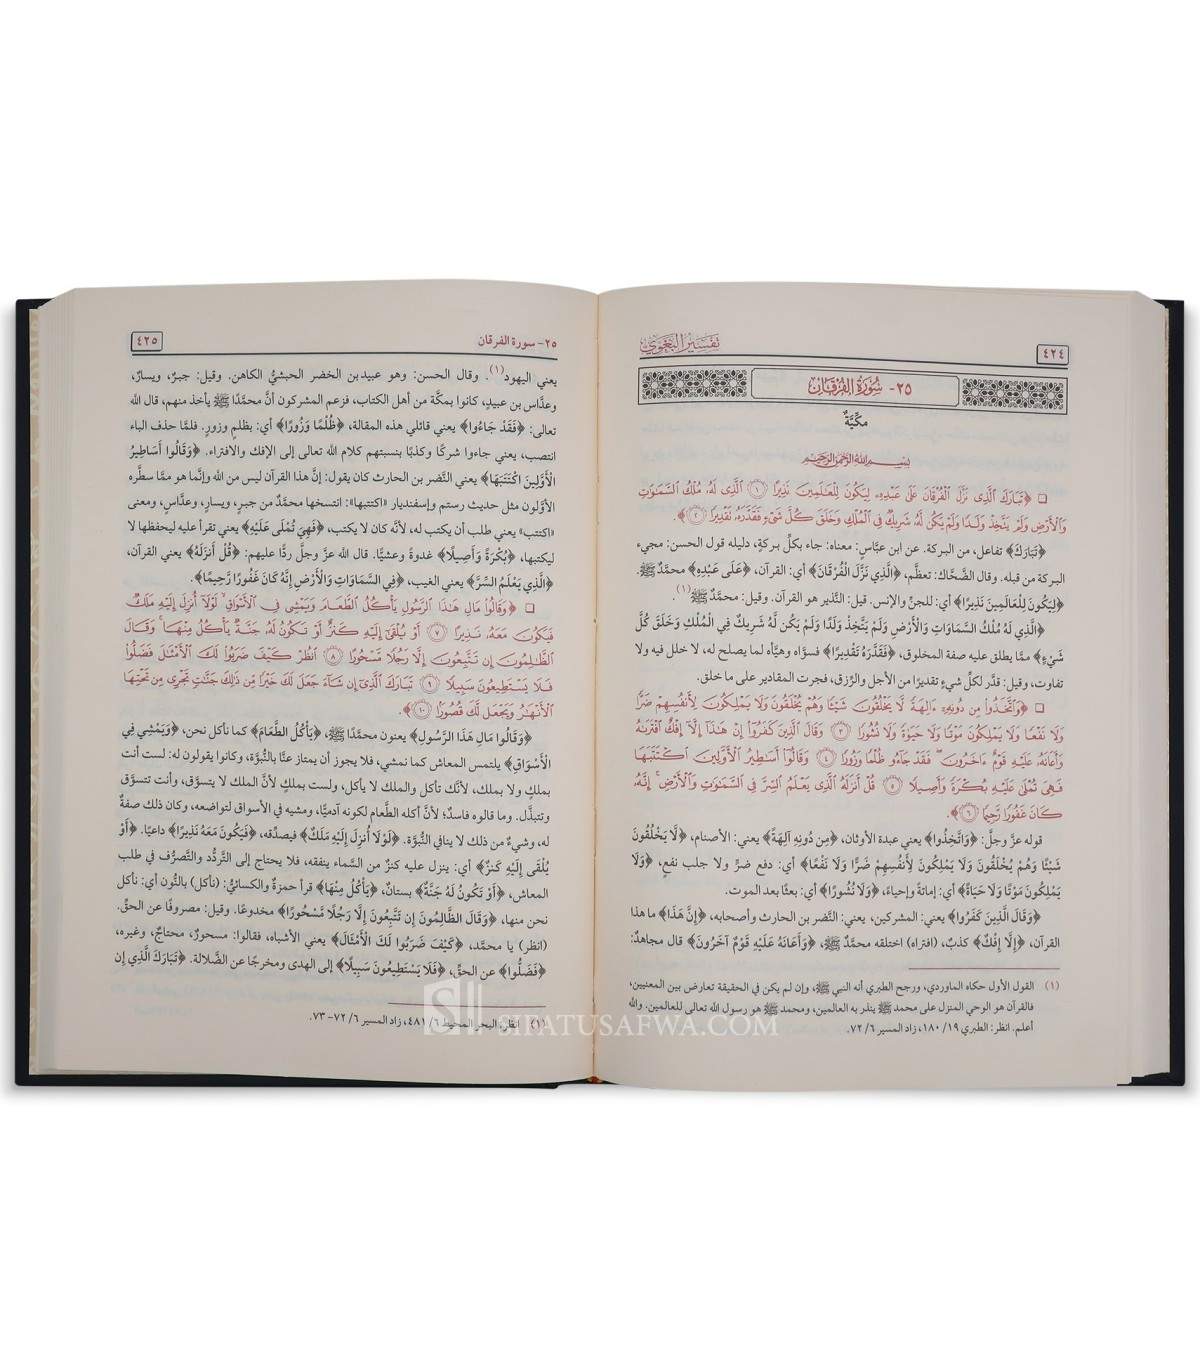 ٤٢٤
تفسير البغوي
٢٥- سُورَةُ الفُرْقَان
مكِّيَّةٌ
بِسْمِ اللهِ الرَّحْمَنِ الرَّحِيمِ
﴿تَبَارَكَ الَّذِى نَزَّلَ الْفُرْقَانَ عَلَىٰ عَبْدِهِۦ لِيَكُونَ لِلْعَٰلَمِينَ نَذِيرًا ۝١ الَّذِى لَهُۥ مُلْكُ السَّمَٰوَٰتِ
وَالْأَرْضِ وَلَمْ يَتَّخِذْ وَلَدًا وَلَمْ يَكُن لَّهُۥ شَرِيكٌ فِى الْمُلْكِ وَخَلَقَ كُلَّ شَىْءٍ فَقَدَّرَهُۥ تَقْدِيرًا ۝٢﴾.
﴿تَبَارَكَ﴾ تفاعل، من البركة. عن ابن عبَّاس: معناه: جاء بكلِّ بركةٍ، دليله قول الحسن: مجيء
البركة من قبله. وقال الضَّحَّاك: تعظَّم، ﴿الَّذِي نَزَّلَ الْفُرْقَانَ﴾ أي: القرآن، ﴿عَلَى عَبْدِهِ﴾ محمَّدٍ ﷺ.
﴿لِيَكُونَ لِلْعَالَمِينَ نَذِيرًا﴾ أي: للجنِّ والإنس. قيل: النَّذير هو القرآن. وقيل: محمَّدٌ ﷺ(١).
﴿الَّذِي لَهُ مُلْكُ السَّمَاوَاتِ وَالْأَرْضِ وَلَمْ يَتَّخِذْ وَلَدًا وَلَمْ يَكُن لَّهُ شَرِيكٌ فِي الْمُلْكِ وَخَلَقَ كُلَّ
شَيْءٍ﴾ ممَّا يطلق عليه صفة المخلوق، ﴿فَقَدَّرَهُ تَقْدِيرًا﴾ فسوَّاه وهيَّأه لما يصلح له، لا خلل فيه ولا
تفاوت، وقيل: قدَّر لكلِّ شيءٍ تقديرًا من الأجل والرِّزق، فجرت المقادير على ما خلق.
﴿وَاتَّخَذُوا مِن دُونِهِۦ ءَالِهَةً لَّا يَخْلُقُونَ شَيْئًا وَهُمْ يُخْلَقُونَ وَلَا يَمْلِكُونَ لِأَنفُسِهِمْ ضَرًّا
وَلَا نَفْعًا وَلَا يَمْلِكُونَ مَوْتًا وَلَا حَيَوٰةً وَلَا نُشُورًا ۝٣ وَقَالَ الَّذِينَ كَفَرُوٓا إِنْ هَٰذَآ إِلَّآ إِفْكٌ افْتَرَىٰهُ
وَأَعَانَهُۥ عَلَيْهِ قَوْمٌ ءَاخَرُونَ فَقَدْ جَآءُو ظُلْمًا وَزُورًا ۝٤ وَقَالُوٓا أَسَٰطِيرُ الْأَوَّلِينَ اكْتَتَبَهَا
فَهِىَ تُمْلَىٰ عَلَيْهِ بُكْرَةً وَأَصِيلًا ۝٥ قُلْ أَنزَلَهُ الَّذِى يَعْلَمُ السِّرَّ فِى السَّمَٰوَٰتِ وَالْأَرْضِ إِنَّهُۥ
كَانَ غَفُورًا رَّحِيمًا ۝٦﴾.
قوله عزَّ وجلَّ: ﴿وَاتَّخَذُوا﴾ يعني عبدة الأوثان، ﴿مِن دُونِهِ آلِهَةً﴾ يعني: الأصنام، ﴿لَّا يَخْلُقُونَ
شَيْئًا وَهُمْ يُخْلَقُونَ وَلَا يَمْلِكُونَ لِأَنفُسِهِمْ ضَرًّا وَلَا نَفْعًا﴾ أي: دفع ضرٍّ ولا جلب نفعٍ، ﴿وَلَا
يَمْلِكُونَ مَوْتًا وَلَا حَيَاةً﴾ أي: إماتةً وإحياءً، ﴿وَلَا نُشُورًا﴾ أي: بعثًا بعد الموت.
﴿وَقَالَ الَّذِينَ كَفَرُوا﴾ يعني: المشركين، يعني: النَّضر بن الحارث وأصحابه، ﴿إِنْ هَذَا﴾ ما هذا
القرآن، ﴿إِلَّا إِفْكٌ﴾ كذبٌ، (افتراه) اختلقه محمَّدٌ ﷺ، ﴿وَأَعَانَهُ عَلَيْهِ قَوْمٌ آخَرُونَ﴾ قال مجاهدٌ:
(١) القول الأول حكاه الماوردي، ورجح الطبري أنه النبي ﷺ، وإن لم يكن في الحقيقة تعارض بين المعنيين،
فالقرآن هو الوحي المنزل على محمد ﷺ ينذر به العالمين، ومحمد ﷺ هو رسول الله تعالى للعالمين. والله
أعلم. انظر: الطبري ١٩/ ١٨٠، زاد المسير ٦/ ٧٢.
٢٥- سورة الفرقان
٤٢٥
يعني اليهود(١). وقال الحسن: وهو عبيد بن الخضر الحبشيُّ الكاهن. وقيل: جبرٌ، ويسارٌ،
وعدَّاس بن عبيدٍ، كانوا بمكَّة من أهل الكتاب، فزعم المشركون أنَّ محمَّدًا ﷺ يأخذ منهم، قال الله
تعالى: ﴿فَقَدْ جَاءُوا﴾ يعني قائلي هذه المقالة، ﴿ظُلْمًا وَزُورًا﴾ أي: بظلمٍ وزورٍ. فلمَّا حذف الباء
انتصب، يعني جاءوا شركًا وكذبًا بنسبتهم كلام الله تعالى إلى الإفك والافتراء. ﴿وَقَالُوا أَسَاطِيرُ
الْأَوَّلِينَ اكْتَتَبَهَا﴾ يعني النَّضر بن الحارث كان يقول: إنَّ هذا القرآن ليس من الله وإنَّما هو ممَّا سطَّره
الأوَّلون مثل حديث رستم وإسفنديار «اكتتبها»: انتسخها محمَّدٌ من جبرٍ، ويسارٍ، وعدَّاسٍ، ومعنى
«اكتتب» يعني طلب أن يكتب له، لأنَّه كان لا يكتب، ﴿فَهِيَ تُمْلَى عَلَيْهِ﴾ يعني تقرأ عليه ليحفظها لا
ليكتبها، ﴿بُكْرَةً وَأَصِيلًا﴾ غدوةً وعشيًّا. قال الله عزَّ وجلَّ ردًّا عليهم: ﴿قُلْ أَنزَلَهُ﴾ يعني القرآن،
﴿الَّذِي يَعْلَمُ السِّرَّ﴾ يعني الغيب، ﴿فِي السَّمَاوَاتِ وَالْأَرْضِ إِنَّهُ كَانَ غَفُورًا رَّحِيمًا﴾.
﴿وَقَالُوا مَالِ هَٰذَا الرَّسُولِ يَأْكُلُ الطَّعَامَ وَيَمْشِى فِى الْأَسْوَاقِ لَوْلَآ أُنزِلَ إِلَيْهِ مَلَكٌ
فَيَكُونَ مَعَهُۥ نَذِيرًا ۝٧ أَوْ يُلْقَىٰٓ إِلَيْهِ كَنزٌ أَوْ تَكُونُ لَهُۥ جَنَّةٌ يَأْكُلُ مِنْهَا وَقَالَ
الظَّٰلِمُونَ إِن تَتَّبِعُونَ إِلَّا رَجُلًا مَّسْحُورًا ۝٨ انظُرْ كَيْفَ ضَرَبُوا لَكَ الْأَمْثَٰلَ فَضَلُّوا
فَلَا يَسْتَطِيعُونَ سَبِيلًا ۝٩ تَبَارَكَ الَّذِىٓ إِن شَآءَ جَعَلَ لَكَ خَيْرًا مِّن ذَٰلِكَ جَنَّٰتٍ تَجْرِى مِن تَحْتِهَا
الْأَنْهَٰرُ وَيَجْعَل لَّكَ قُصُورًا ۝١٠﴾.
﴿وَقَالُوا مَالِ هَذَا الرَّسُولِ﴾ يعنون محمَّدًا ﷺ، ﴿يَأْكُلُ الطَّعَامَ﴾ كما نأكل نحن، ﴿وَيَمْشِي فِي
الْأَسْوَاقِ﴾ يلتمس المعاش كما نمشي، فلا يجوز أن يمتاز عنَّا بالنُّبوَّة، وكانوا يقولون له: لست أنت
بملكٍ ولا بملك، لأنَّك تأكل والملك لا يأكل، ولست بملكٍ لأنَّ الملك لا يتسوَّق، وأنت تتسوَّق
وتتبذَّل. وما قالوه فاسدٌ؛ لأنَّ أكله الطَّعام لكونه آدميًّا، ومشيه في الأسواق لتواضعه، وكان ذلك صفةً
له، وشيءٌ من ذلك لا ينافي النُّبوَّة. ﴿لَوْلَا أُنزِلَ إِلَيْهِ مَلَكٌ﴾ فيصدِّقه، ﴿فَيَكُونَ مَعَهُ نَذِيرًا﴾ داعيًا. ﴿أَوْ
يُلْقَى إِلَيْهِ كَنزٌ﴾ أي: ينزل عليه كنزٌ من السَّماء ينفقه، فلا يحتاج إلى التَّردُّد والتَّصرُّف في طلب
المعاش، ﴿أَوْ تَكُونُ لَهُ جَنَّةٌ﴾ بستانٌ، ﴿يَأْكُلُ مِنْهَا﴾ قرأ حمزة والكسائيُّ: (نأكل) بالنُّون أي: نأكل
نحن منها، ﴿وَقَالَ الظَّالِمُونَ إِن تَتَّبِعُونَ إِلَّا رَجُلًا مَّسْحُورًا﴾ مخدوعًا. وقيل: مصروفًا عن الحقِّ.
(انظر) يا محمَّد، ﴿كَيْفَ ضَرَبُوا لَكَ الْأَمْثَالَ﴾ يعني الأشباه، فقالوا: مسحورٌ، محتاجٌ، وغيره،
﴿فَضَلُّوا﴾ عن الحقِّ، ﴿فَلَا يَسْتَطِيعُونَ سَبِيلًا﴾ إلى الهدى ومخرجًا عن الضَّلالة. ﴿تَبَارَكَ الَّذِي إِن
(١) انظر: البحر المحيط ٦/ ٤٨١، زاد المسير ٦/ ٧٢-٧٣.
SIFATUSAFWA.COM